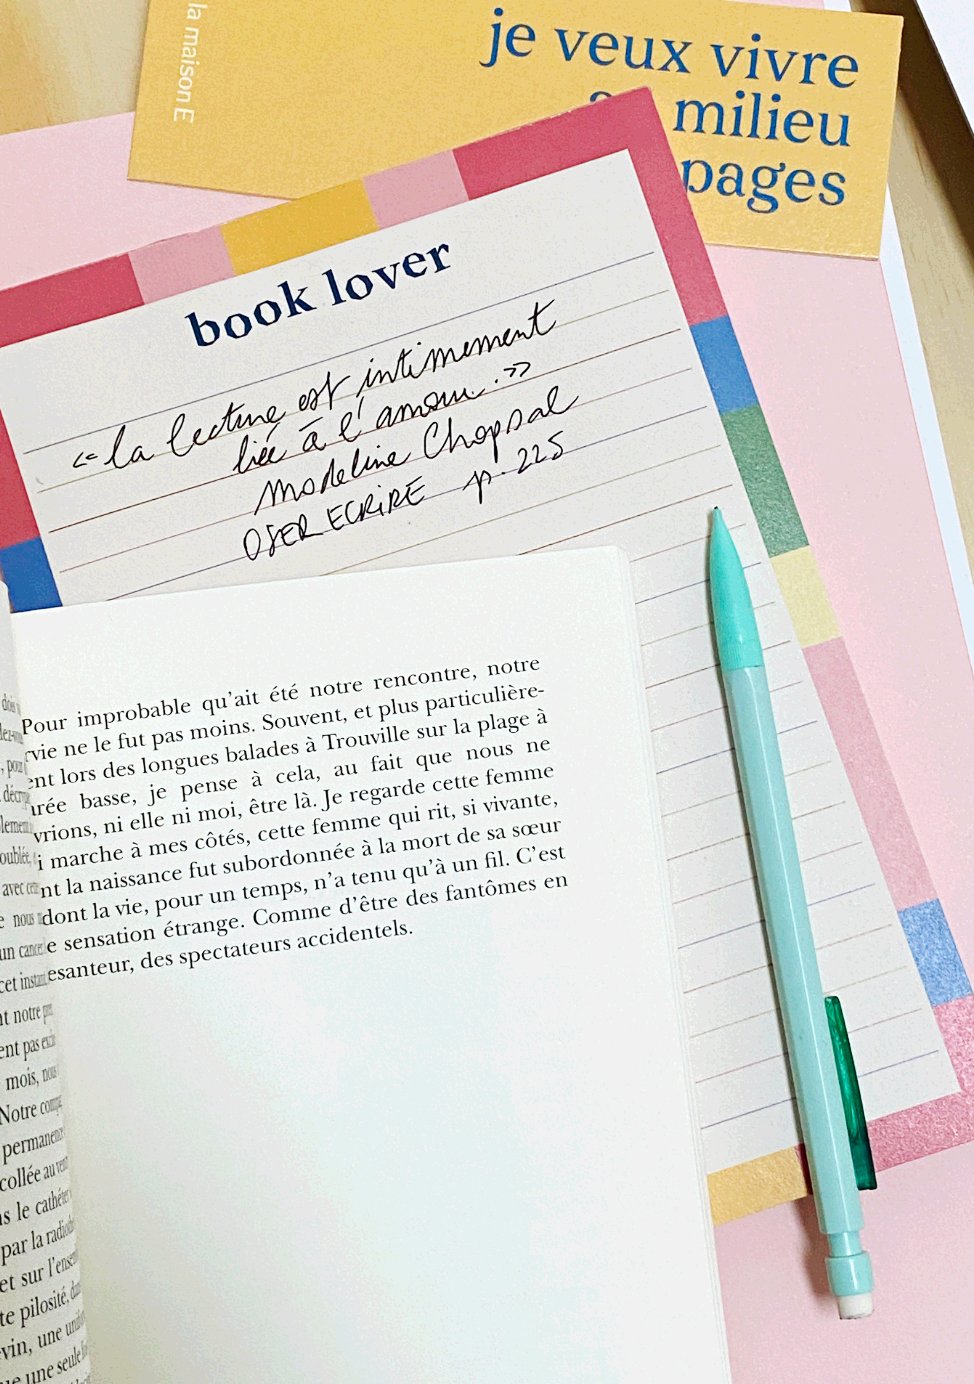 la maison E
je veux vivre
milieu
pages
book lover
« la lecture est intimement
liée à l'amour. »
Madeline Chapsal
OSER ECRIRE p. 225
Pour improbable qu'ait été notre rencontre, notre
vie ne le fut pas moins. Souvent, et plus particulière-
ent lors des longues balades à Trouville sur la plage à
arée basse, je pense à cela, au fait que nous ne
vrions, ni elle ni moi, être là. Je regarde cette femme
i marche à mes côtés, cette femme qui rit, si vivante,
nt la naissance fut subordonnée à la mort de sa sœur
dont la vie, pour un temps, n'a tenu qu'à un fil. C'est
e sensation étrange. Comme d'être des fantômes en
esanteur, des spectateurs accidentels.
oublié,
avec
nous
un cancer
cet instant
nt notre
ent pas
mois, nous
Notre
permanence
collée au
s le cathéter
par la
et sur l'
te pilosité,
vin, une
ue une seule